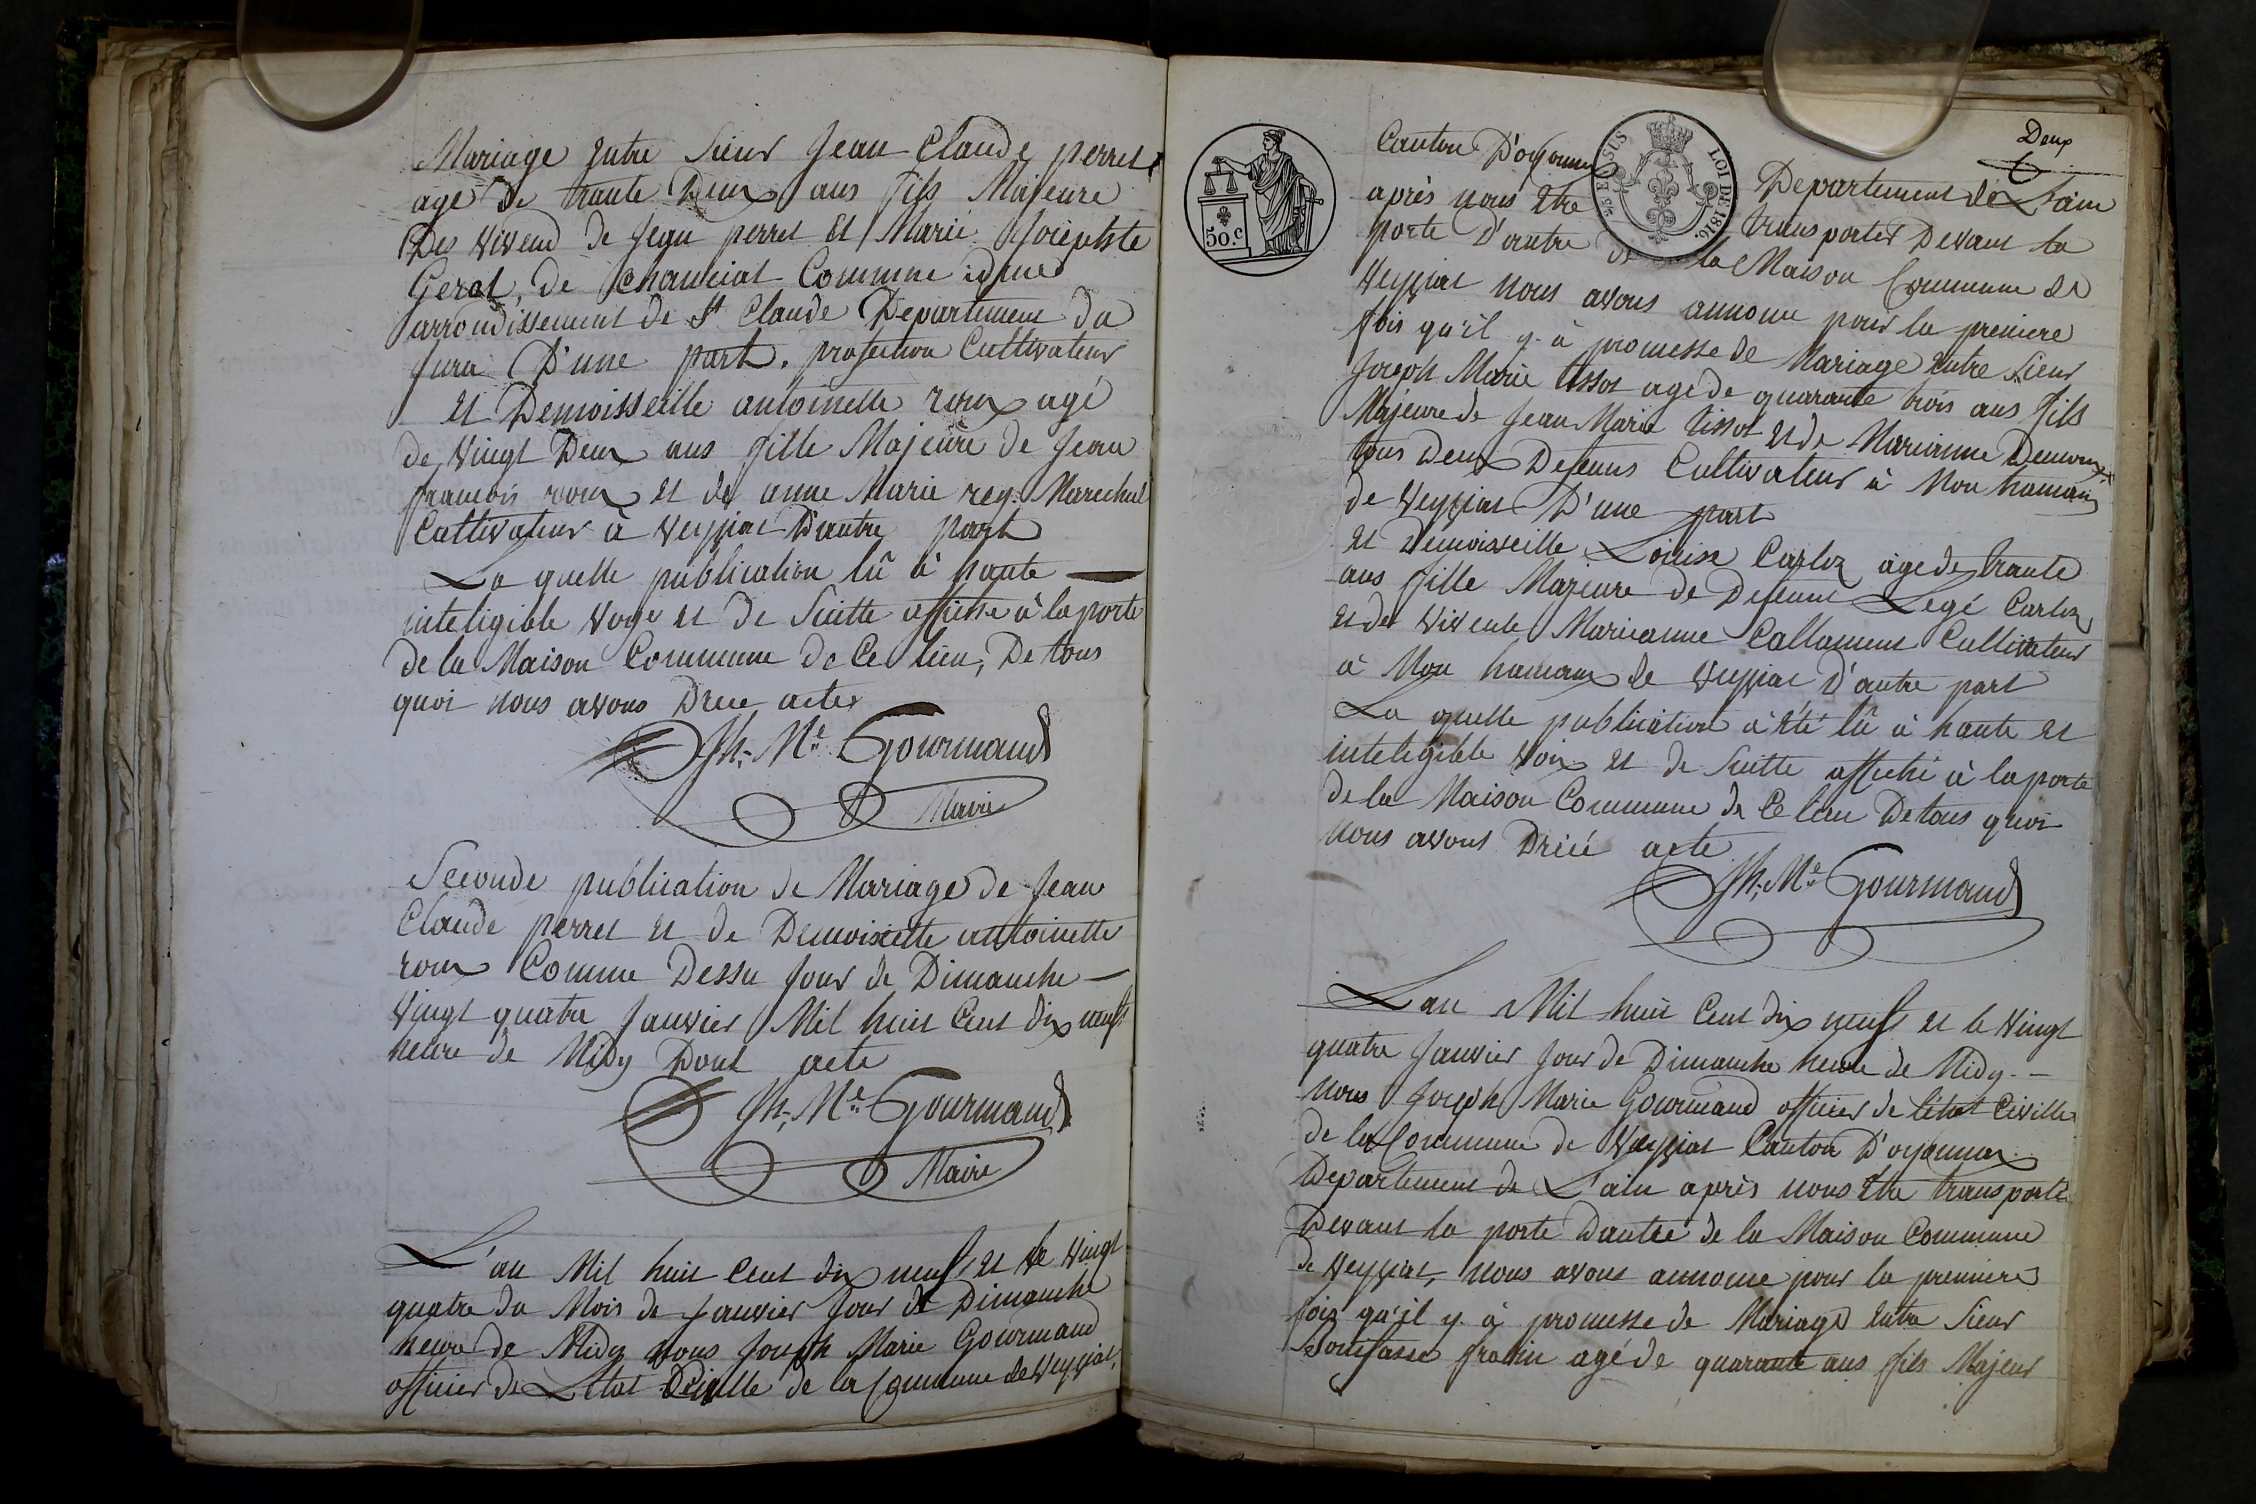 Mariage Entre Sieur Jean Claude perret
agé de trante Deux ans fils Majeure
Des vivend de Jean perret Et Marie Joiephte
Gerot, de chanciat Commune
arrondissement de St Claude Departement du
Jura D'une part. profection Cultivateur
Et Demoisseille antoinette roux agé
de Vingt Deux ans fille Majeure de Jean
francois roux Et de anne Marie rey. Marechal
Cultivateur à Veyziat D'autre part
La quelle publication lû à haute
inteligible voye et de Suitte affiche à la porte
de la Maison Commune de Ce lieu, De tous
quoi nous avons Drec acte
Jh. Me Gourmand
Maire
Seconde publication de Mariage de Jean
Claude perret et de Demoiselle antoinette
roux Comme Dessu Jour de Dimanche
Vingt quatre Janvier Mil huit Cent dix neuf
heure de Midy Dont acte
Jh. Me Gourmand
Maire
L'an Mil huit Cent dix neuf, et le Vingt
quatre du Mois de Janvier Jour de Dimanche
heure de Midy Nous Joseph Marie Gourmand
officier de L'Etat Civille de la Commune de Veyziat,
Deux
50.c
LOI DE 1816.
Canton D'oyonnax Departement de L'ain
après nous Etre transporter Devant la
porte D'antre de la Maison Commune de
Veyziat nous avons annonce pour la premiere
fois qu'il y à promesse de Mariage Entre Sieur
Joseph Marie tissot agé de quarante trois ans fils
Majeure de Jean Marie tissot et de Marianne
tous Deux Defunts Cultivateur à Mon hamaux
de Veyziat D'une part
et Demoisseille Louise Carloz àgé de trante
ans fille Majeure de Defunt Legé Carloz
et de vivente Marieanne Callament Cultivateur
à Mon hamaux de Veyziat D'autre part
La quelle publication à été lû à haute et
inteligible voix et de Suitte affiché à la porte
de la Maison Commune de Ce lieu De tous quoi
nous avons Drecé acte
Jh. Me Gourmand
Lan Mil huit Cent dix neuf et le Vingt
quatre Janvier Jour de Dimanche heure de Midy.
nous Joseph Marie Gourmand officier de l'état Civille
de la Commune de Veyziat Canton D'oyonnax
Departement de L'ain après nous être transporté
Devant la porte Dantre de la Maison Commune
de Veyziat, nous avons annonce pour la premiere
fois qu'il y à promesse de Mariage Entre Sieur
Bonifasse agé de quarante ans fils Majeur